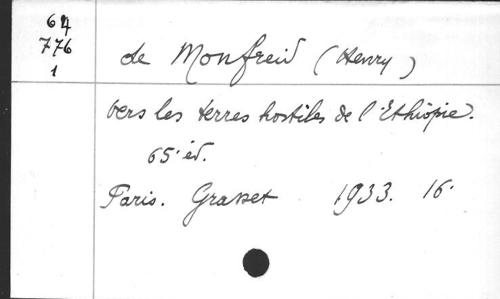 64
776
1
de Monfreid (Henry)
Vers les terres hostiles de l'Ethiopie.
65. éd.
Paris. Grasset 1933. 16.